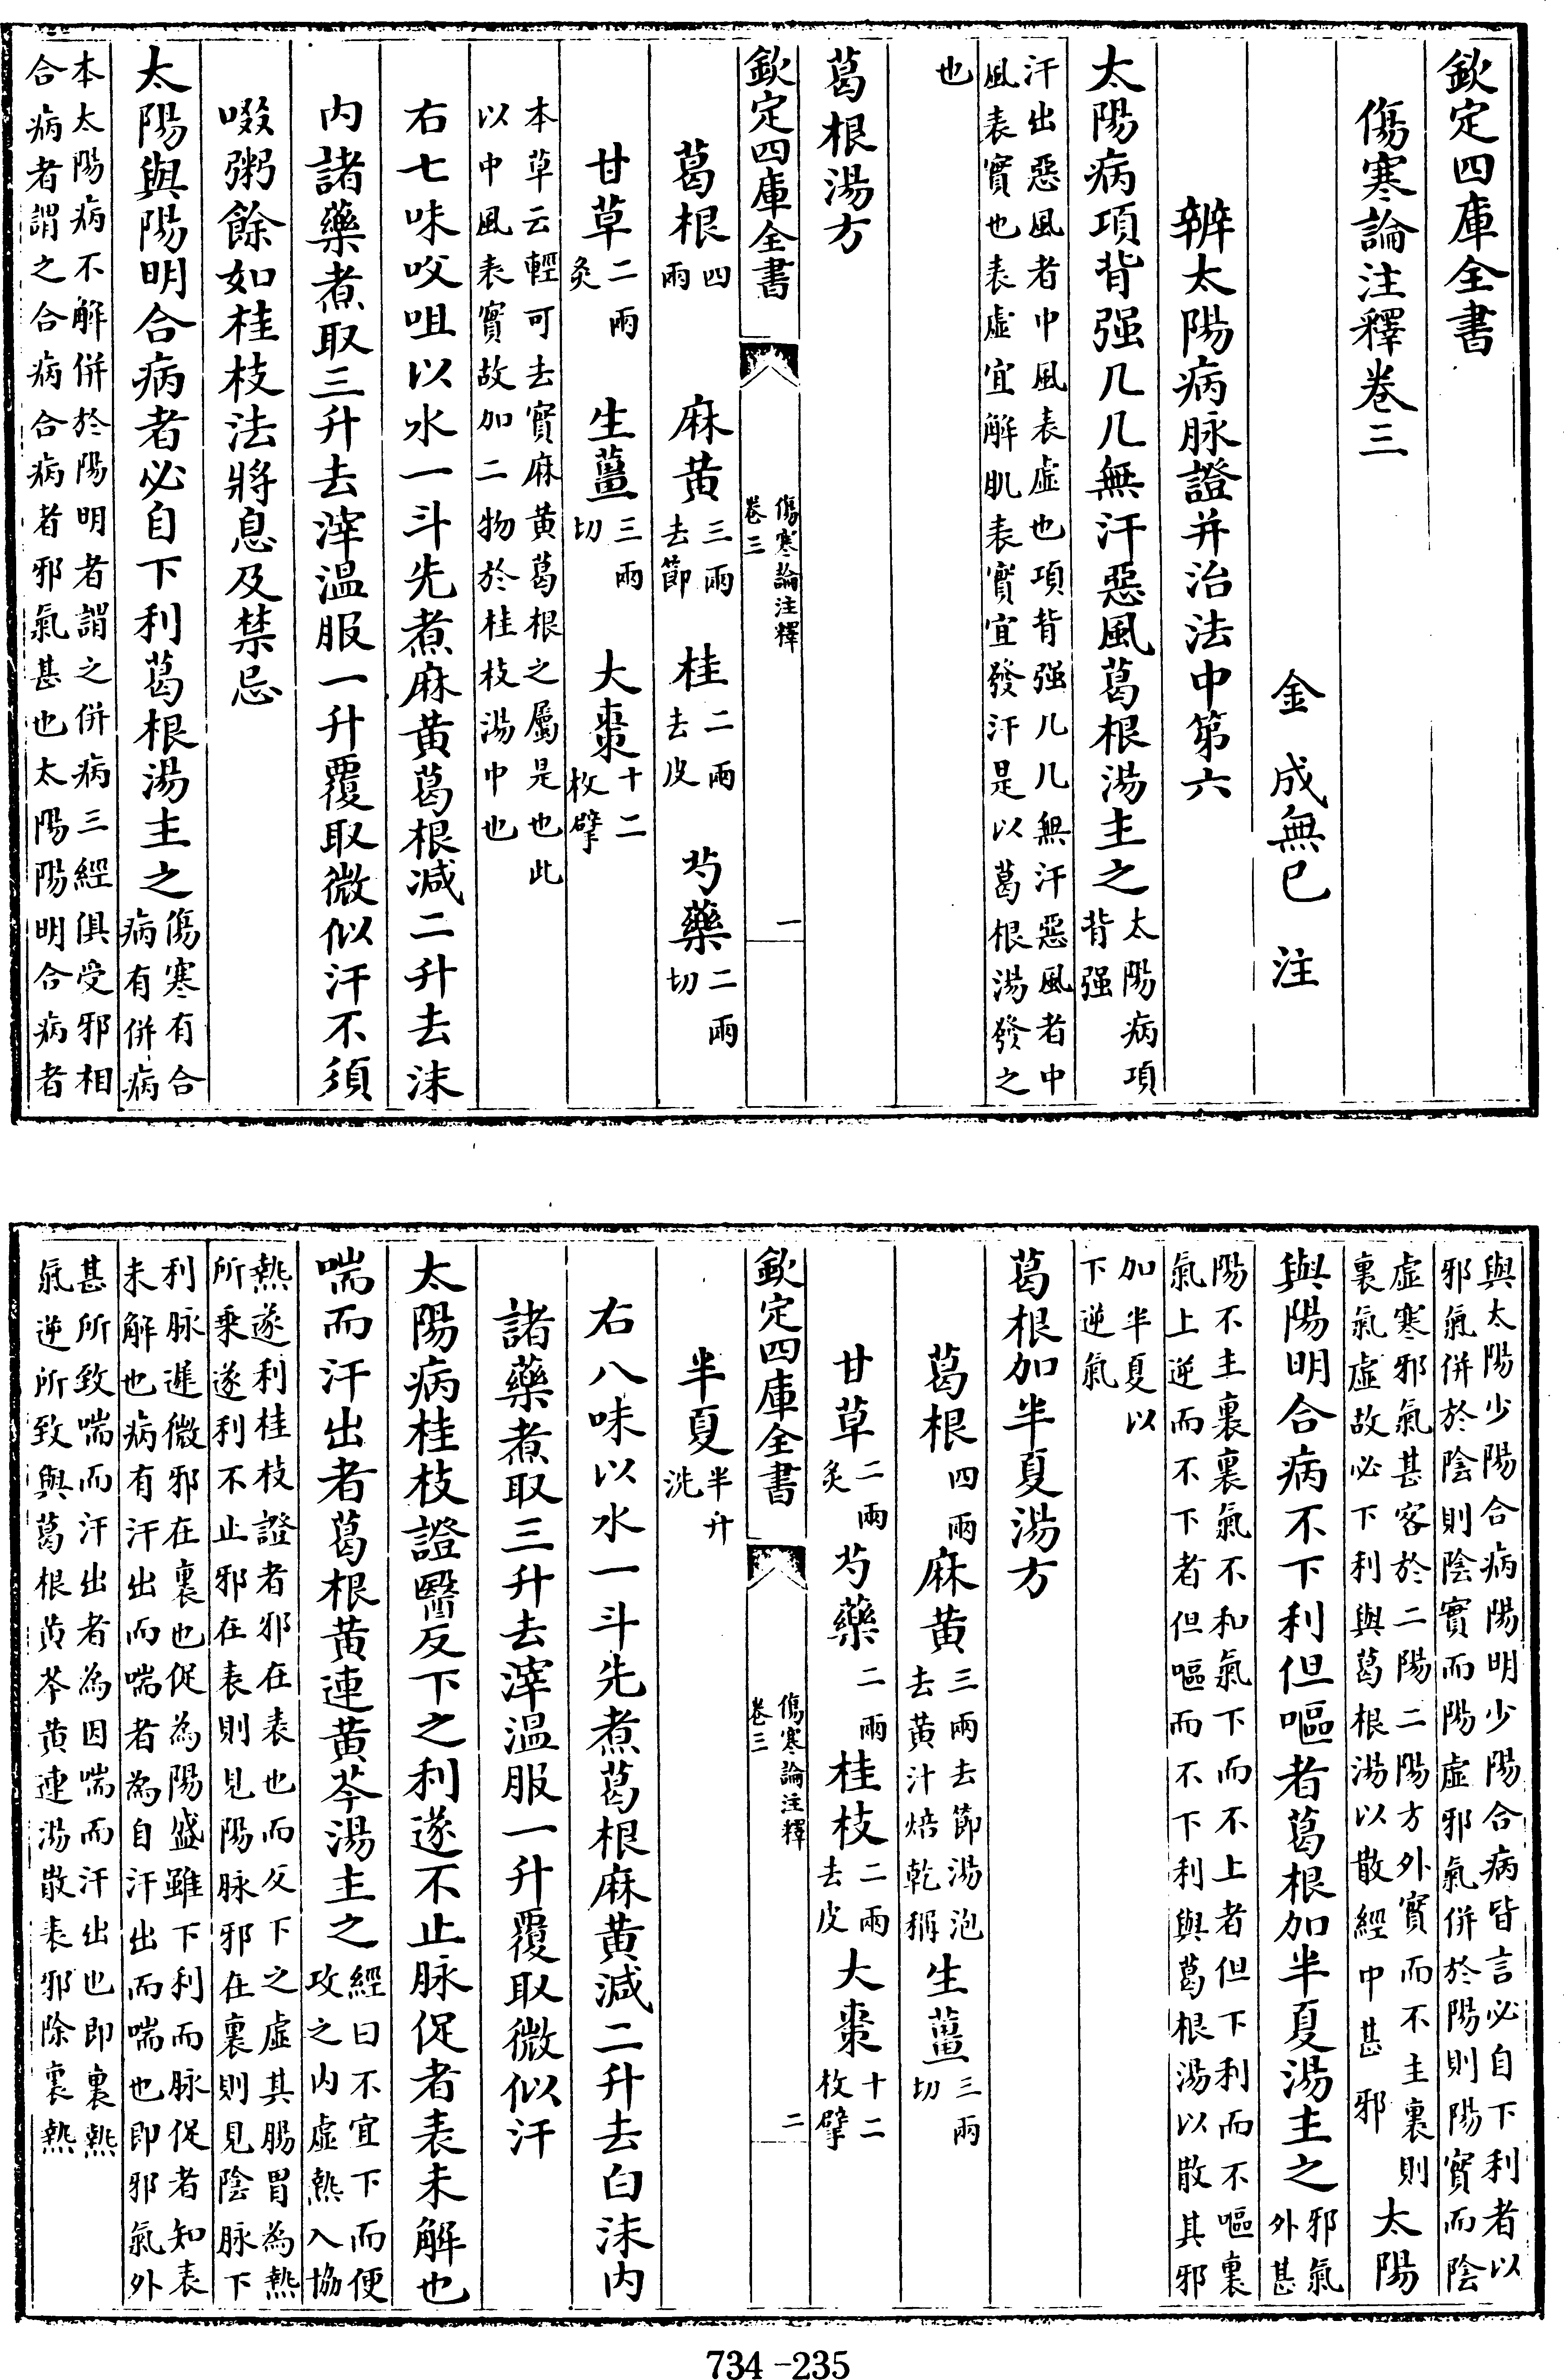 欽定四庫全書
傷寒論注釋卷三
金 成無已 注
辨太陽病脉證并治法中第六
太陽病項背强几几無汗惡風葛根湯主之太陽病項
背强
汗出惡風者中風表虛也項背强几几無汗惡風者中
風表實也表虛宜解肌表實宜發汗是以葛根湯發之
也
葛根湯方
欽定四庫全書
傷寒論注釋
卷三
一
葛根四
兩 麻黄三兩
去節 桂二兩
去皮 芍藥二兩
切
甘草二兩
炙 生薑三兩
切 大棗十二
枚擘
本草云輕可去實麻黄葛根之屬是也此
以中風表實故加二物於桂枝湯中也
右七味㕮咀以水一斗先煮麻黄葛根减二升去沫
内諸藥煮取三升去滓温服一升覆取微似汗不須
啜粥餘如桂枝法將息及禁忌
太陽與陽明合病者必自下利葛根湯主之傷寒有合
病有併病
本太陽病不解併於陽明者謂之併病三經俱受邪相
合病者謂之合病合病者邪氣甚也太陽陽明合病者
與太陽少陽合病陽明少陽合病皆言必自下利者以
邪氣併於陰則陰實而陽虛邪氣併於陽則陽實而陰
虛寒邪氣甚客於二陽二陽方外實而不主裏則
裏氣虛故必下利與葛根湯以散經中甚邪 太陽
與陽明合病不下利但嘔者葛根加半夏湯主之邪氣
外甚
陽不主裏裏氣不和氣下而不上者但下利而不嘔裏
氣上逆而不下者但嘔而不下利與葛根湯以散其邪
加半夏以
下逆氣
葛根加半夏湯方
葛根四兩 麻黄三兩去節湯泡
去黄汁焙乾稱 生薑三兩
切
甘草二兩
炙 芍藥二兩 桂枝二兩
去皮 大棗十二
枚擘
欽定四庫全書
傷寒論注釋
卷三
二
半夏半升
洗
右八味以水一斗先煮葛根麻黄減二升去白沫内
諸藥煮取三升去滓温服一升覆取微似汗
太陽病桂枝證醫反下之利遂不止脉促者表未解也
喘而汗出者葛根黄連黄芩湯主之經曰不宜下而便
攻之内虛熱入協
熱遂利桂枝證者邪在表也而反下之虛其腸胃為熱
所乗遂利不止邪在表則見陽脉邪在裏則見陰脉下
利脉遲微邪在裏也促為陽盛雖下利而脉促者知表
未解也病有汗出而喘者為自汗出而喘也即邪氣外
甚所致喘而汗出者為因喘而汗出也即裏熱
氣逆所致與葛根黄芩黄連湯散表邪除裏熱
734-235